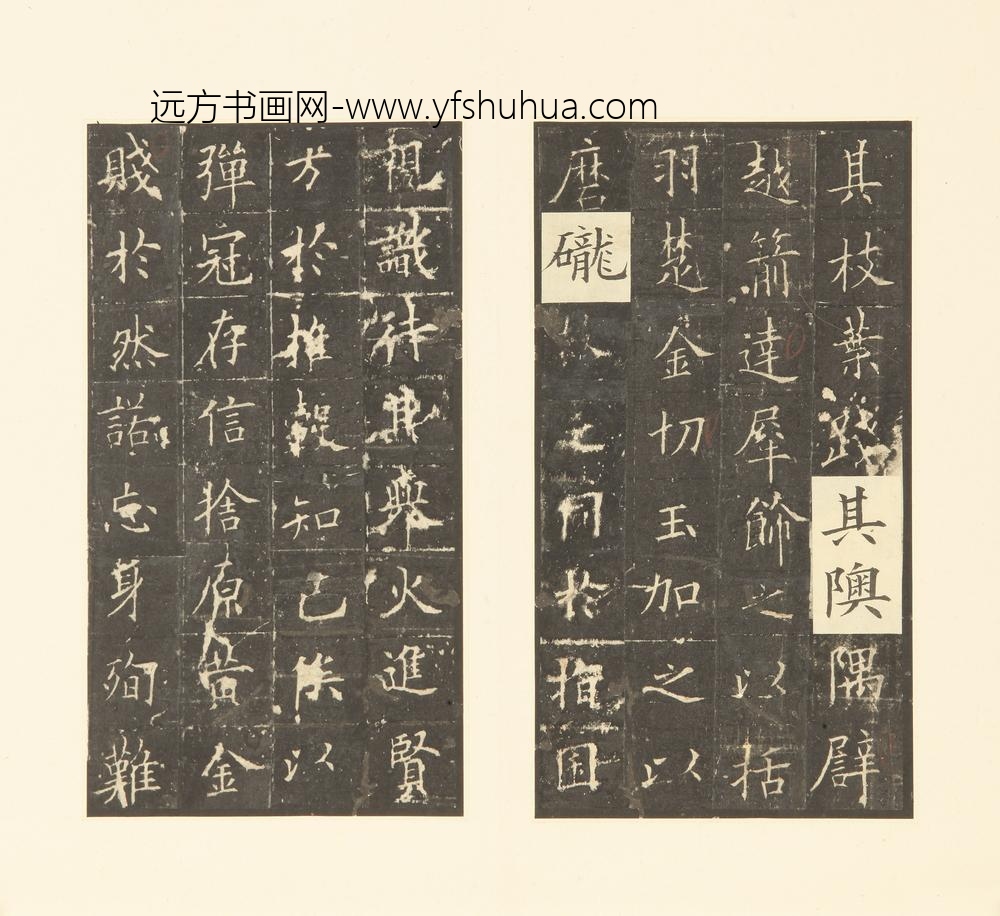 远方书画网-www.yfshuhua.com
其枝葉踐其隩隅譬
越箭達犀飾之以括
羽楚金切玉加之以
磨礱之同於指囷
親識待其舉火進賢
方於推轂知己俟以
彈冠存信捨原黃金
賤於然諾忘身殉難